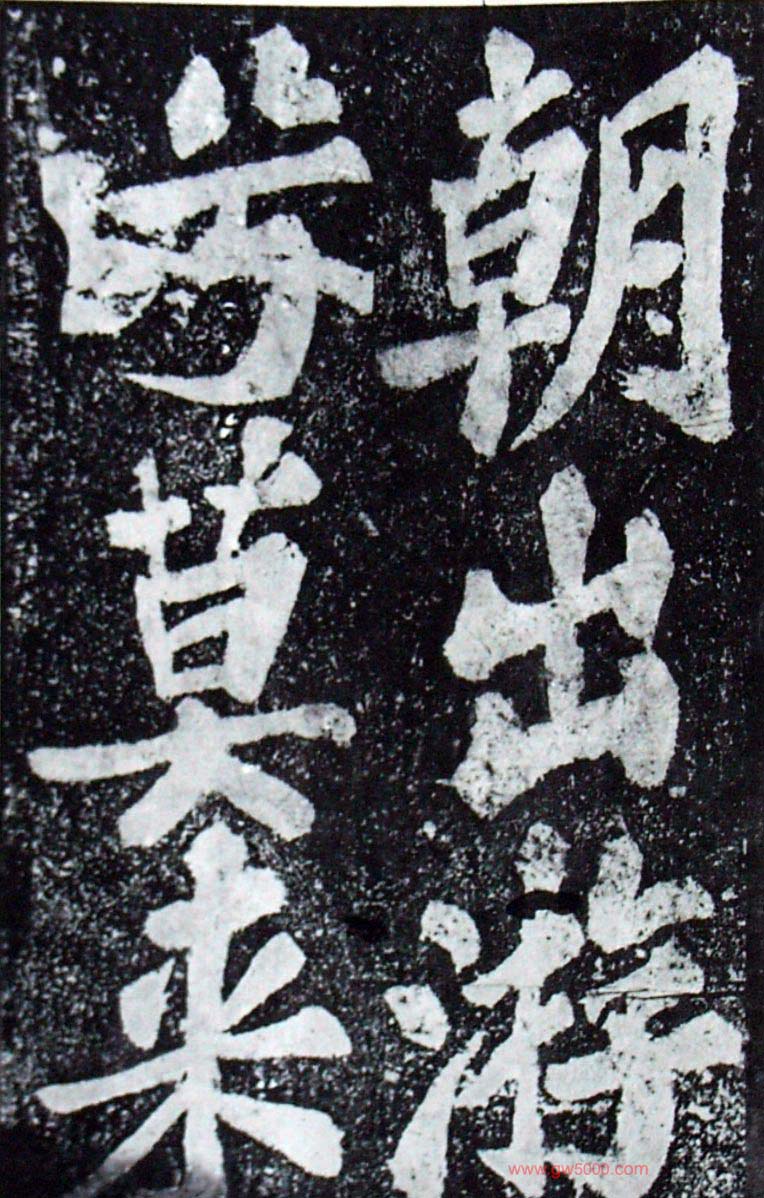 朝出游
兮莫来
www.gw500p.com